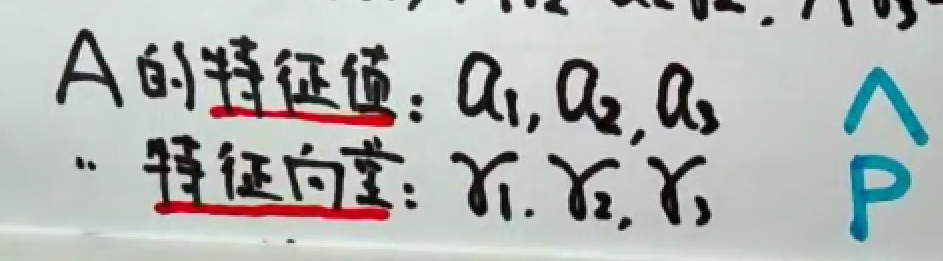 A的特征值: a₁, a₂, a₃ Λ
" 特征向量: γ₁. γ₂, γ₃ P